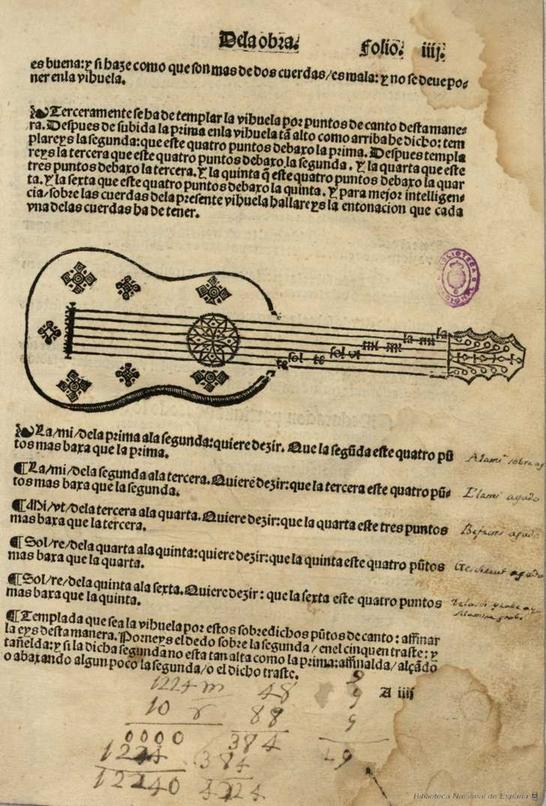 De la obra.
Folio. iiij.
es buena: y si haze como que son mas de dos cuerdas/es mala: y no se deue po-
ner enla vihuela.
Terceramente se ha de templar la vihuela por puntos de canto desta mane-
ra. Despues de subida la prima enla vihuela tā alto como arriba he dicho: tem
plareys la segunda: que este quatro puntos debaxo la prima. Despues templa
reys la tercera que este quatro puntos debaxo la segunda. Y la quarta que este
tres puntos debaxo la tercera. Y la quinta q̄ este quatro puntos debaxo la quar
ta. Y la sexta que este quatro puntos debaxo la quinta. Y para mejor intelligen-
cia/sobre las cuerdas dela presente vihuela hallareys la entonacion que cada
vna delas cuerdas ha de tener.
la mi la
mi mi
sol vt
sol re
re
La/mi/dela prima ala segunda: quiere dezir. Que la segūda este quatro pū
tos mas baxa que la prima.
¶ La/mi/dela segunda ala tercera. Quiere dezir: que la tercera este quatro pū
tos mas baxa que la segunda.
¶ Mi/vt/dela tercera ala quarta. Quiere dezir: que la quarta este tres puntos
mas baxa que la tercera.
¶ Sol/re/dela quarta ala quinta: quiere dezir: que la quinta este quatro pūtos
mas baxa que la quarta.
¶ Sol/re/dela quinta ala sexta. Quiere dezir: que la sexta este quatro puntos
mas baxa que la quinta.
¶ Templada que sea la vihuela por estos sobredichos pūtos de canto: affinar
la eys desta manera. Porneys el dedo sobre la segunda/enel cinquen traste: y
tañelda: y si la dicha segunda no esta tan alta como la prima: affinalda/alçādo
o abaxando algun poco la segunda/o el dicho traste.
A iiij
1224 m
10 r
0000
1224
12240
48
88
384
384
4224
9
9
9
Biblioteca Nacional de España